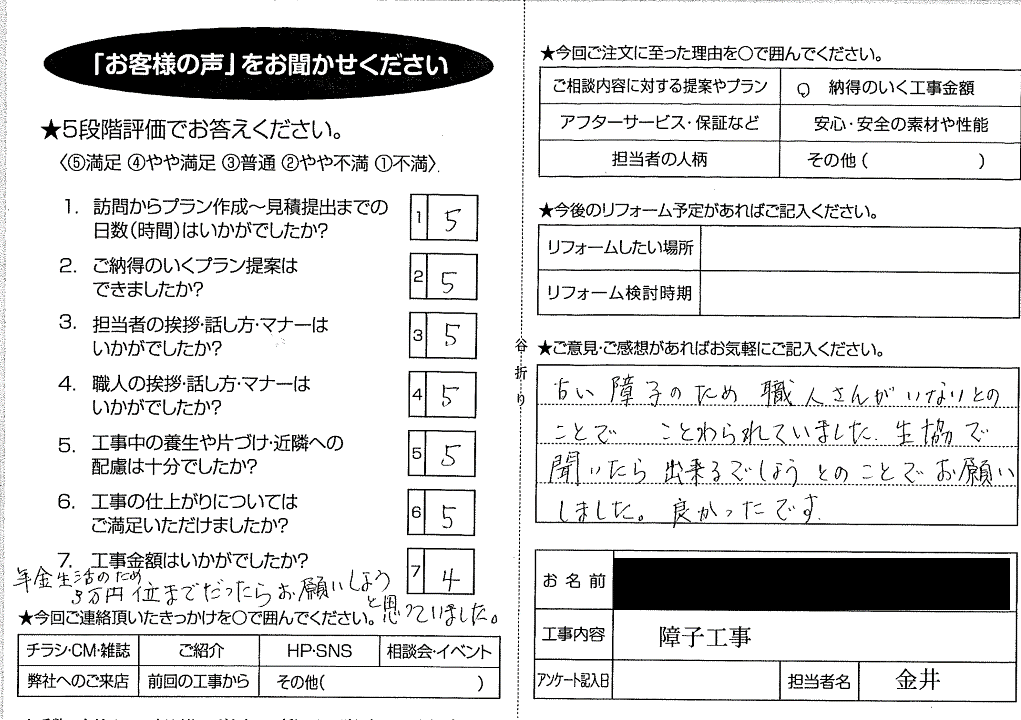 「お客様の声」をお聞かせください
★5段階評価でお答えください。
〈⑤満足 ④やや満足 ③普通 ②やや不満 ①不満〉
1. 訪問からプラン作成～見積提出までの
日数(時間)はいかがでしたか?
1 5
2. ご納得のいくプラン提案は
できましたか?
2 5
3. 担当者の挨拶・話し方・マナーは
いかがでしたか?
3 5
4. 職人の挨拶・話し方・マナーは
いかがでしたか?
4 5
5. 工事中の養生や片づけ・近隣への
配慮は十分でしたか?
5 5
6. 工事の仕上がりについては
ご満足いただけましたか?
6 5
7. 工事金額はいかがでしたか?
7 4
年金生活のため
3万円位までだったらお願いしよう
と思っていました。
★今回ご連絡頂いたきっかけを〇で囲んでください。
チラシ・CM・雑誌 ご紹介 HP・SNS 相談会・イベント
弊社へのご来店 前回の工事から その他( )
谷折り
★今回ご注文に至った理由を〇で囲んでください。
ご相談内容に対する提案やプラン 〇 納得のいく工事金額
アフターサービス・保証など 安心・安全の素材や性能
担当者の人柄 その他( )
★今後のリフォーム予定があればご記入ください。
リフォームしたい場所
リフォーム検討時期
★ご意見・ご感想があればお気軽にご記入ください。
古い障子のため 職人さんがいないとの
ことで ことわられていました。生協で
聞いたら出来るでしょうとのことでお願い
しました。良かったです。
お名前
工事内容 障子工事
アンケート記入日 担当者名 金井